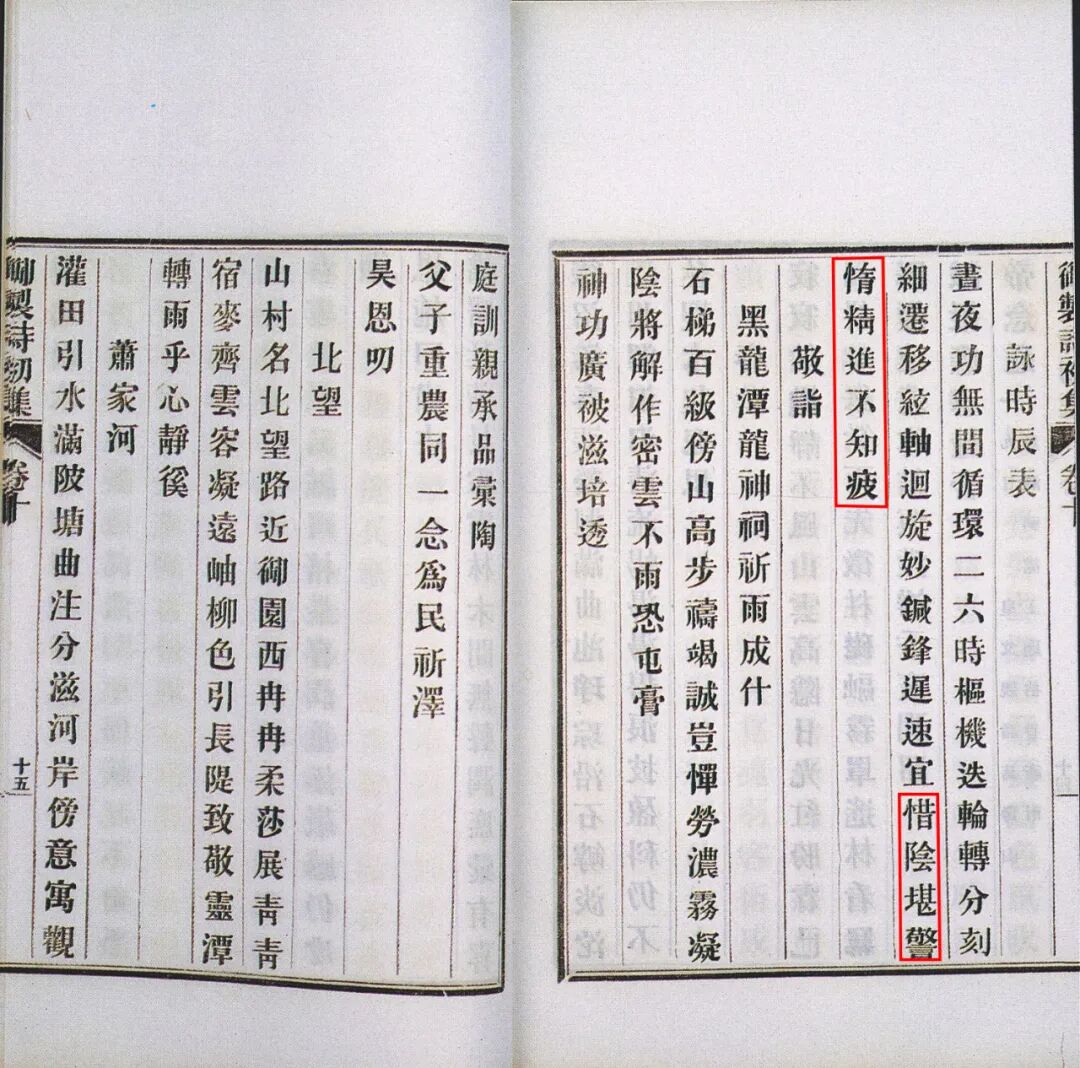 詠時辰表
晝夜功無間循環二六時樞機迭輪轉分刻
細遷移絃軸迴旋妙鍼鋒遲速宜惜陰堪警
惰精進不知疲
敬詣
黑龍潭龍神祠祈雨成什
石梯百級傍山高步禱竭誠豈憚勞濃霧凝
陰將解作密雲不雨恐屯膏
神功廣被滋培透
庭訓親承品彙陶
父子重農同一念為民祈澤
昊恩叨
北望
山村名北望路近御園西冉冉柔莎展青青
宿麥齊雲容凝遠岫柳色引長隄致敬靈潭
轉雨乎心靜徯
蕭家河
灌田引水滿陂塘曲注分滋河岸傍意寓觀
御製詩初集 卷十 十五